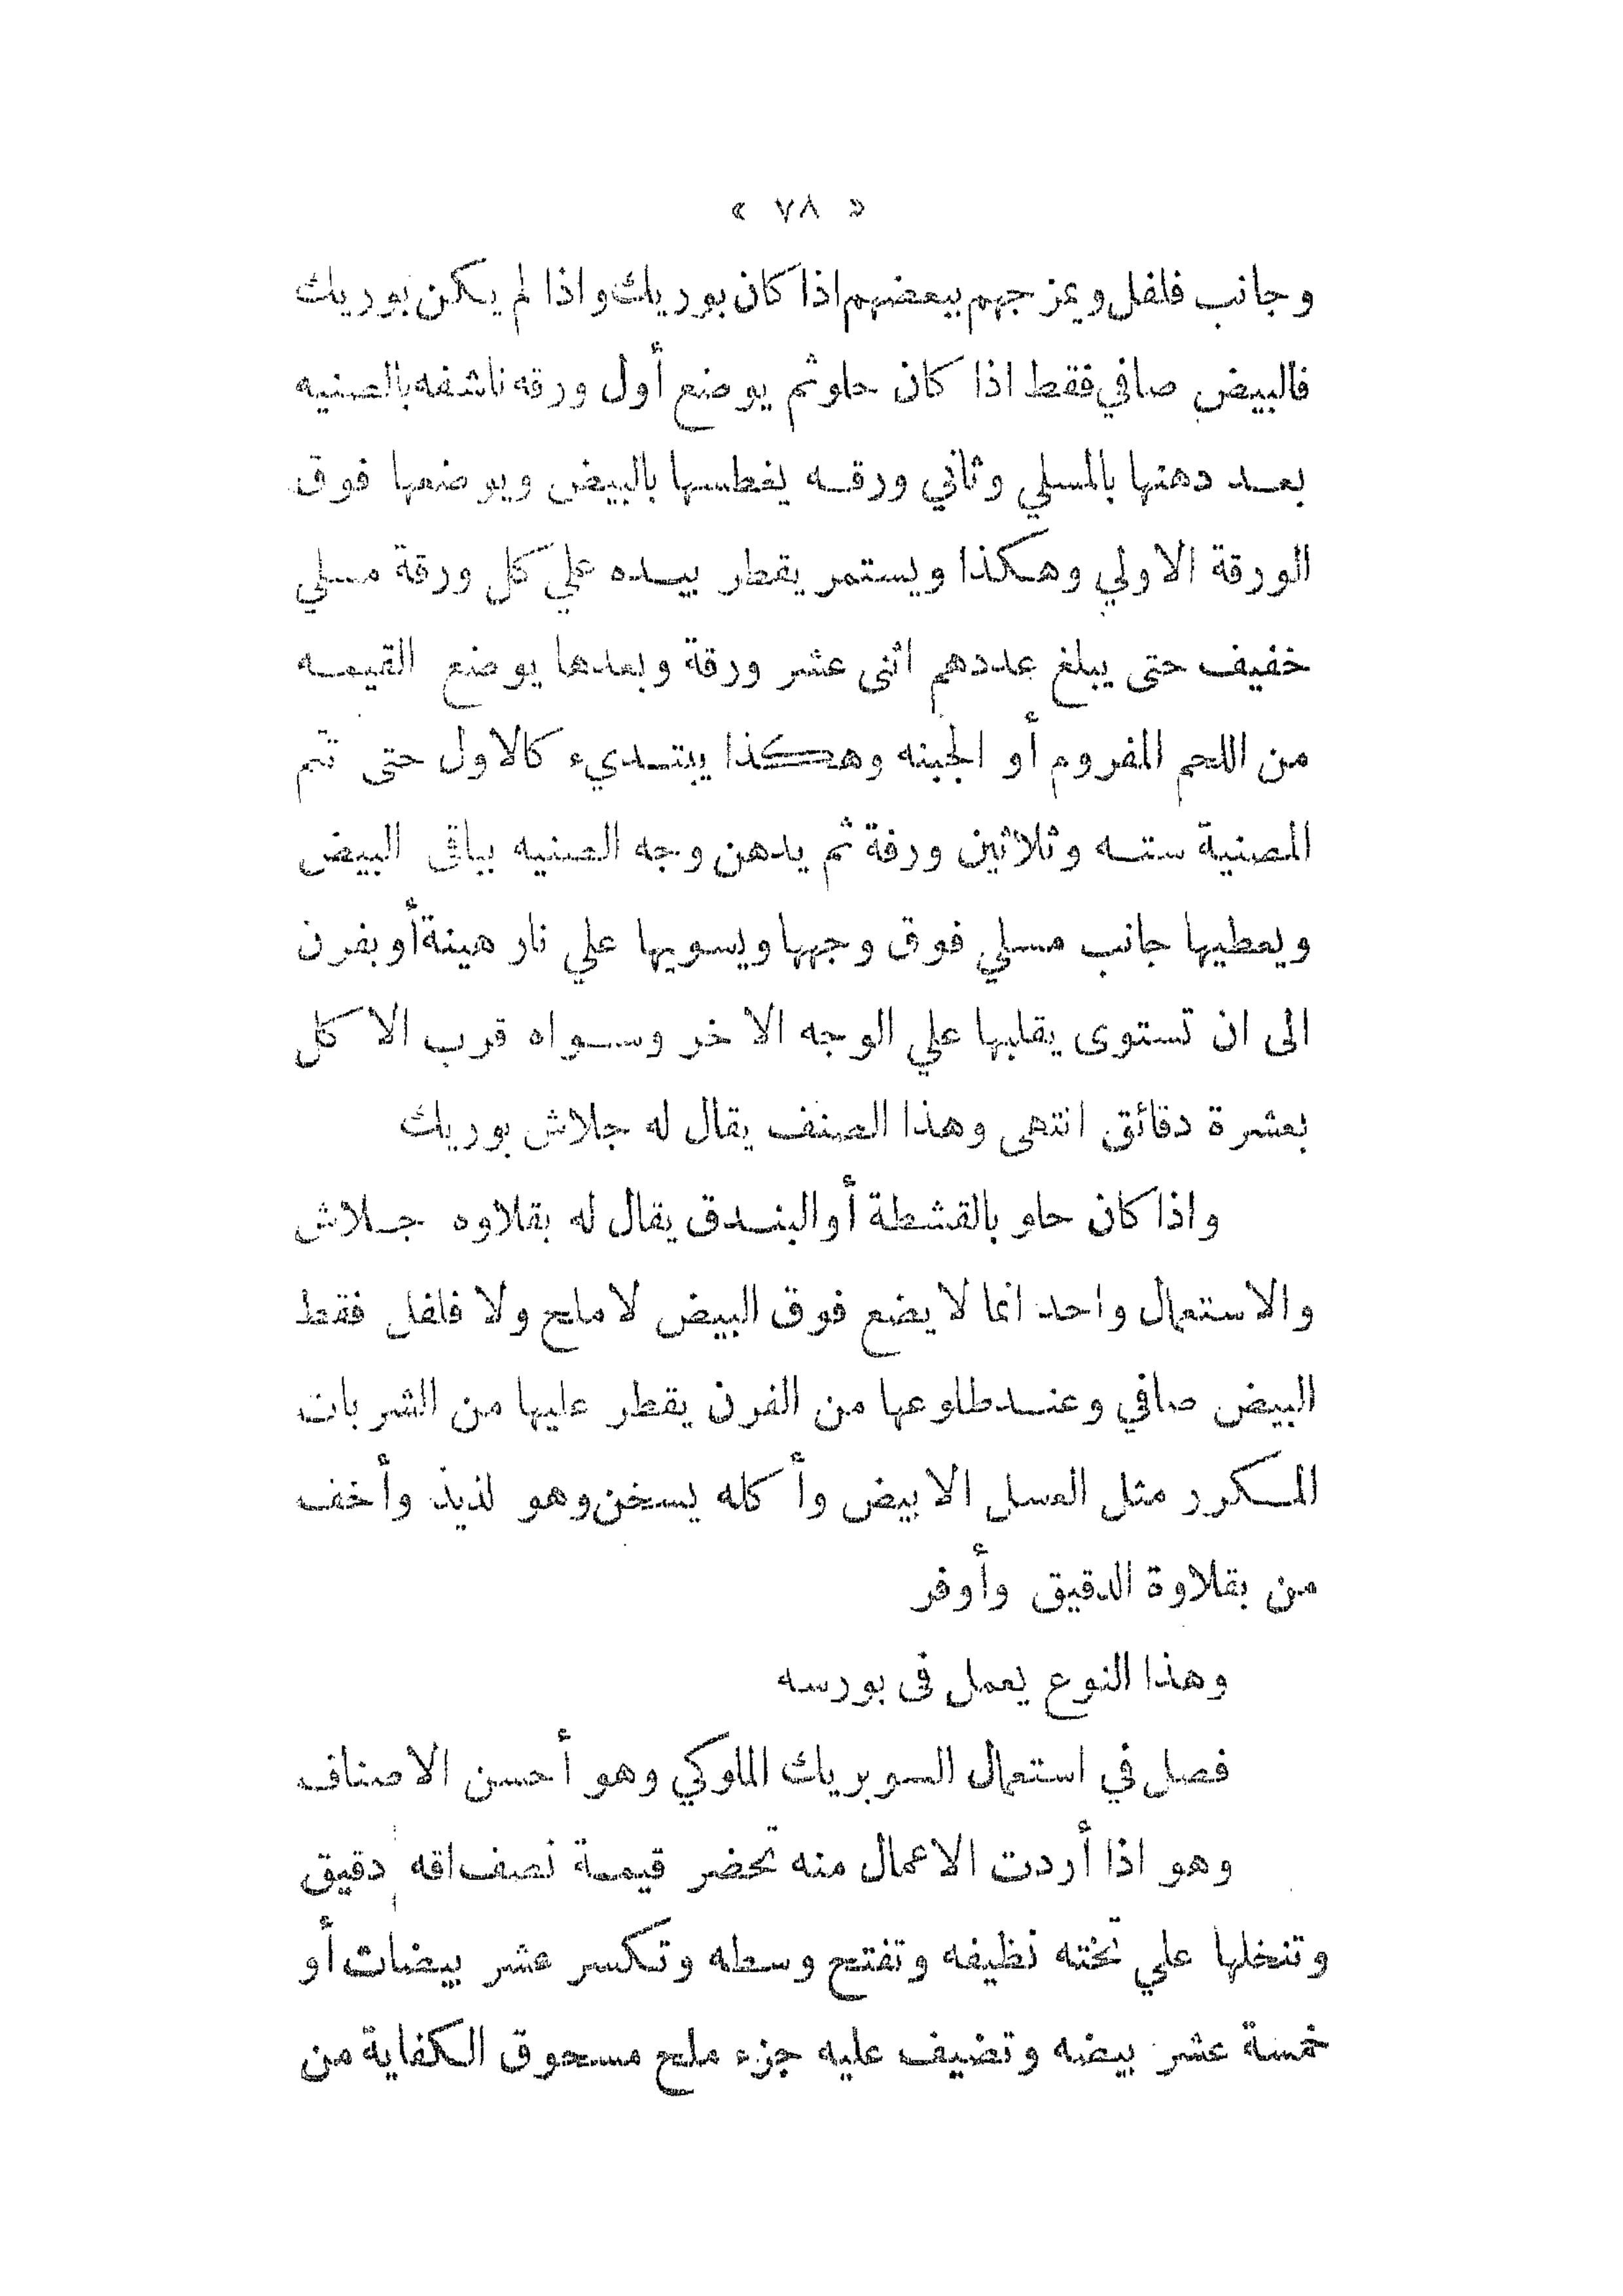 « ٧٨ »
وجانب فلفل ويمزجهم ببعضهم اذا كان بوريك واذا لم يكن بوريك
فالبيض صافي فقط اذا كان حلو ثم يوضع أول ورقه ناشفه بالصنيه
بعد دهنها بالمسلي وثاني ورقه يغطسها بالبيض ويوضعها فوق
الورقة الاولي وهكذا ويستمر يقطر بيده علي كل ورقة مسلي
خفيف حتى يبلغ عددهم اثنى عشر ورقة وبعدها يوضع القيمه
من اللحم المفروم أو الجبنه وهكذا يبتديء كالاول حتى تتم
المصنية سته وثلاثين ورقة ثم يدهن وجه الصنيه بباقى البيض
ويعطيها جانب مسلي فوق وجهها ويسويها علي نار هينة أو بفرن
الى ان تستوى يقلبها علي الوجه الاخر وسواه قرب الاكل
بعشرة دقائق انتهى وهذا الصنف يقال له جلاش بوريك
واذا كان حلو بالقشطة أو البندق يقال له بقلاوه جلاش
والاستعمال واحد انما لا يضع فوق البيض لا ملح ولا فلفل فقط
البيض صافي وعند طلوعها من الفرن يقطر عليها من الشربات
المسكرر مثل العسل الابيض وأكله يسخن وهو لذيذ وأخف
من بقلاوة الدقيق وأوفر
وهذا النوع يعمل فى بورسه
فصل في استعمال السوبريك الملوكي وهو أحسن الاصناف
وهو اذا أردت الاعمال منه تحضر قيمة نصف اقه دقيق
وتنخلها علي تخته نظيفه وتفتح وسطه وتكسر عشر بيضات أو
خمسة عشر بيضه وتضيف عليه جزء ملح مسحوق الكفاية من